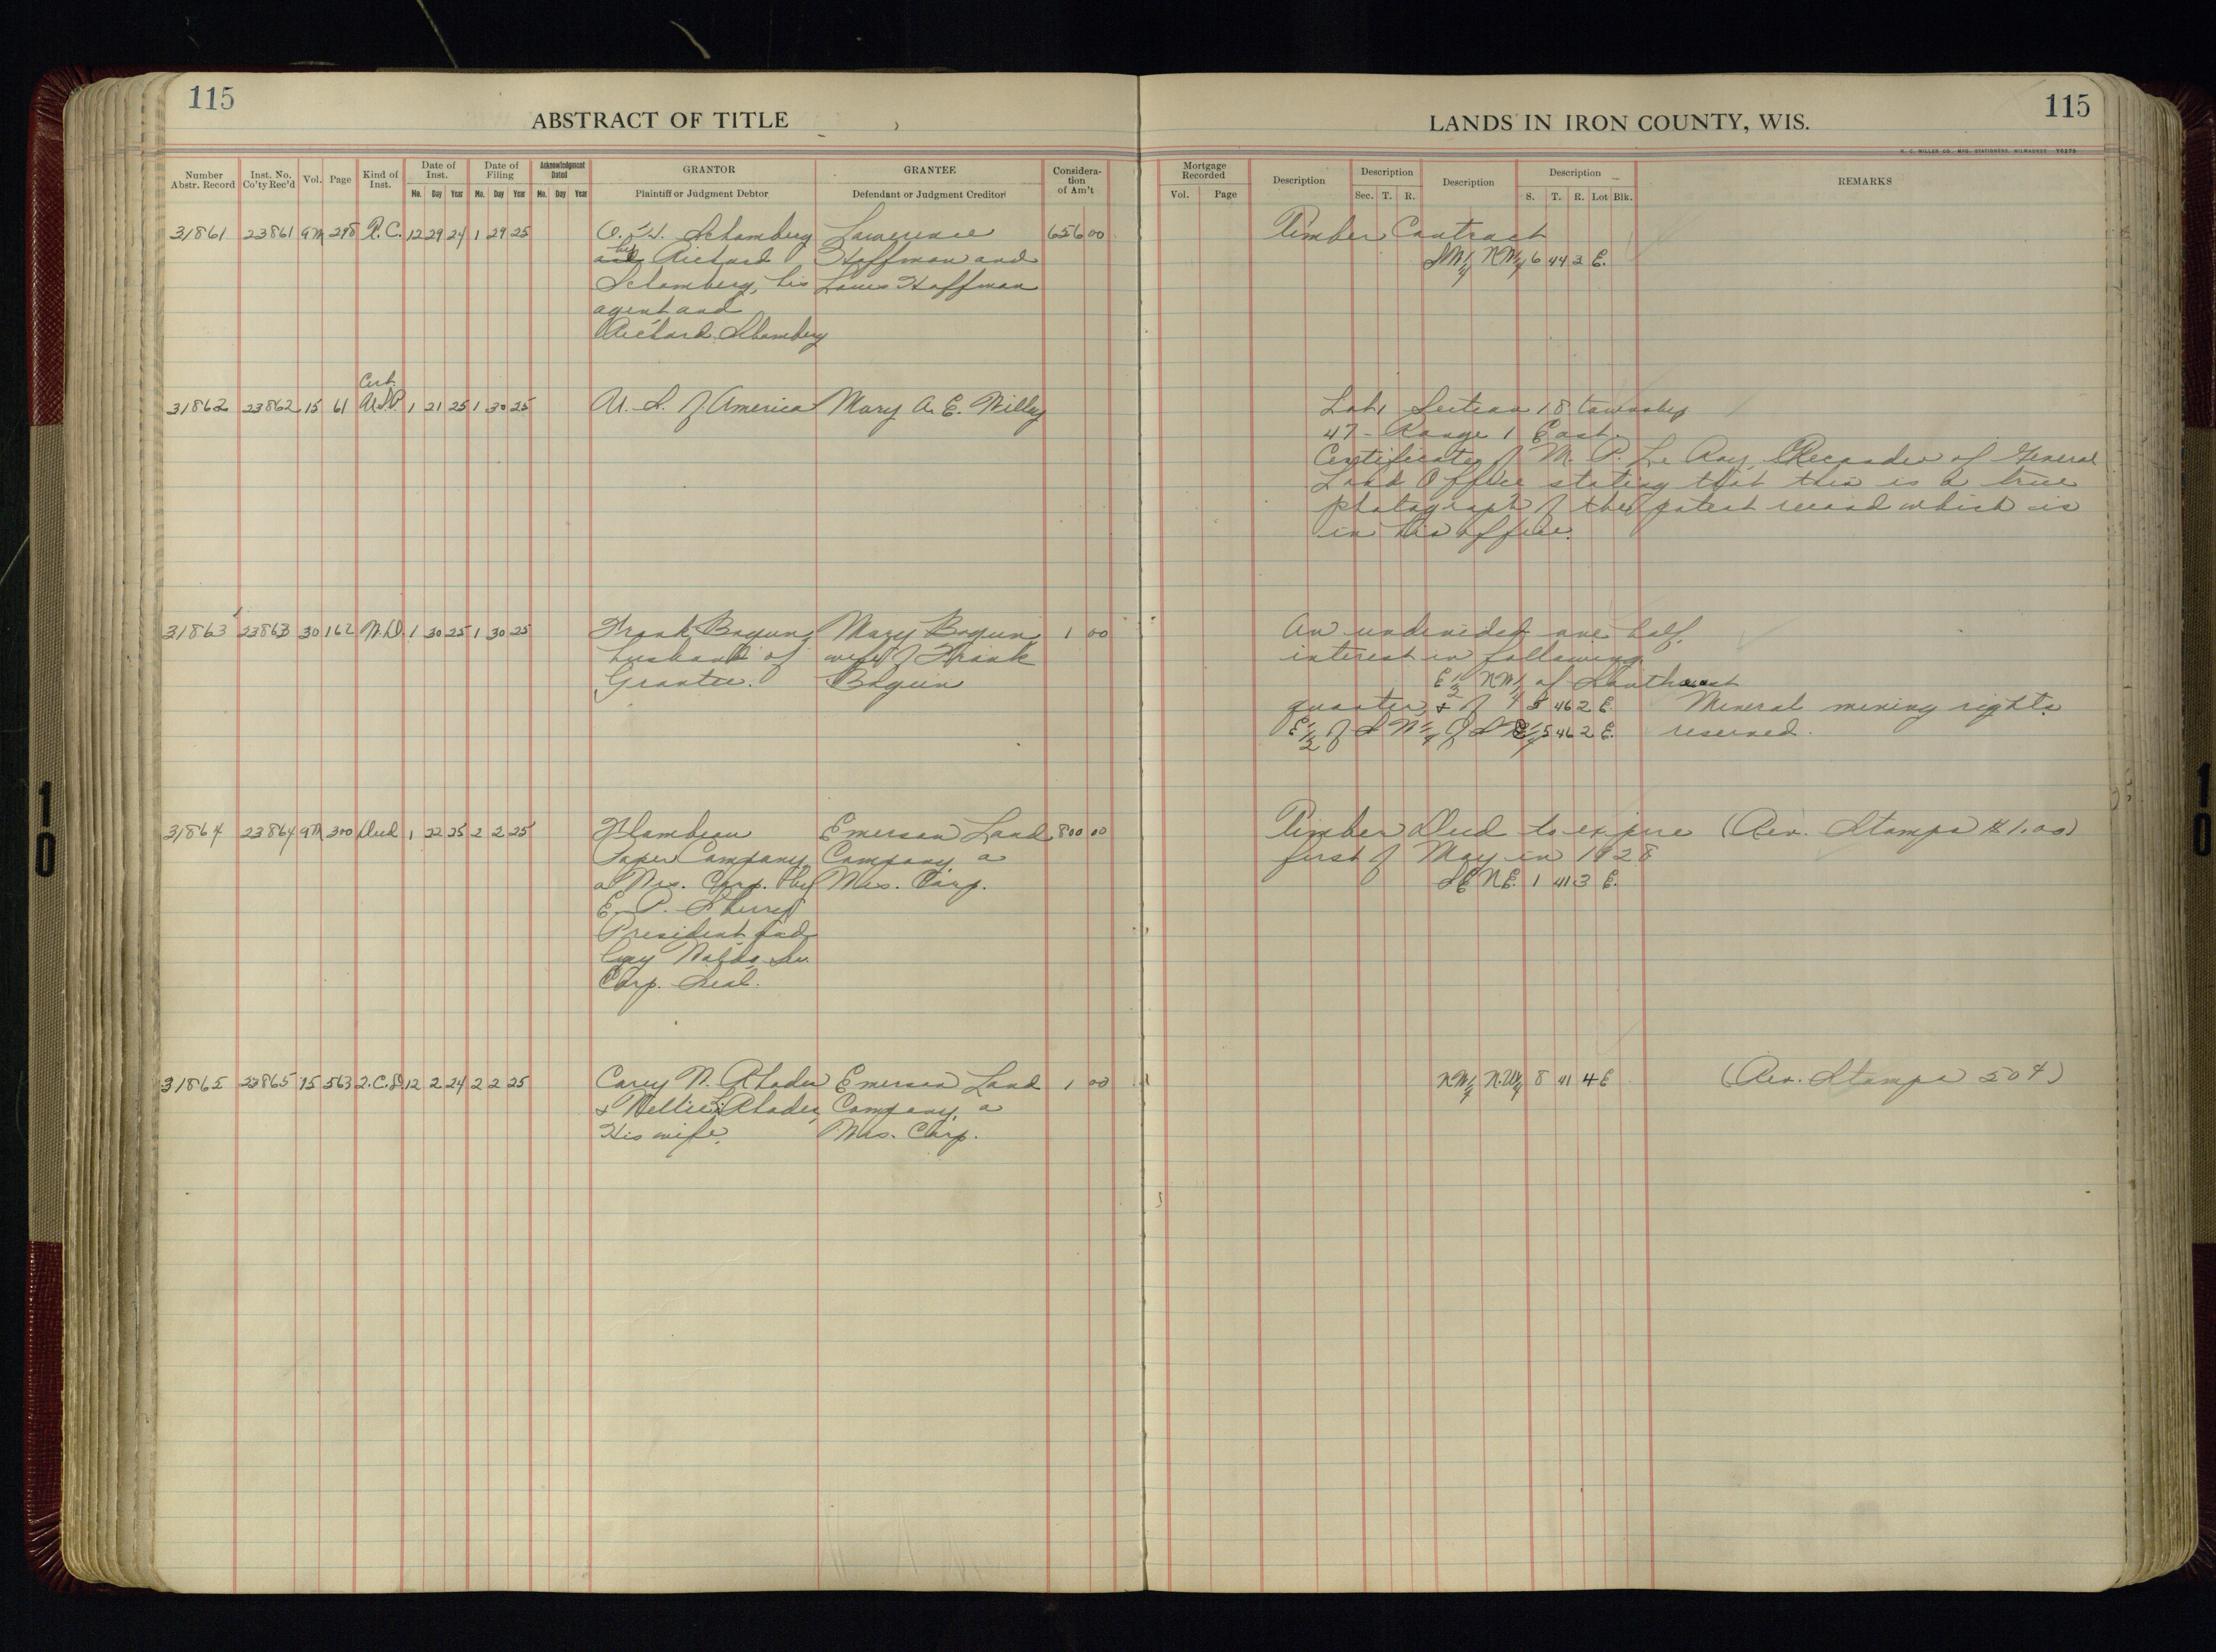 115
ABSTRACT OF TITLE
Number Abstr. Record
Inst. No. Co'ty Rec'd
Vol.
Page
Kind of Inst.
Date of Inst.
Mo. Day Year
Date of Filing
Mo. Day Year
Acknowledgment Dated
Mo. Day Year
GRANTOR
Plaintiff or Judgment Debtor
GRANTEE
Defendant or Judgment Creditor
Consideration of Am't
31861 23861 9M 298 12 29 24 1 29 25 Schomberg Lawrence 656 00
by Richard Hoffman and
Schomberg, his Louis Hoffman
agent and
Richard Schomberg
Cert.
31862 23862 15 61 U.S.P. 1 21 25 1 30 25 U. S. of America Mary A. E. Willey
31863 23863 30 162 W.D. 1 30 25 1 30 25 Frank Bogun, Mary Bogun, 1 00
husband of wife of Frank
Grantee. Bogun
31864 23864 9M 300 Deed 1 22 25 2 2 25 Flambeau Emerson Land 800 00
Paper Company, Company, a
a Wis. Corp. by Wis. Corp.
E. P. Sherry
President and
Guy Waldo, Sec.
Corp. Seal.
31865 23865 15 563 2.C.D. 12 2 24 2 2 25 Carey W. Rhodes Emerson Land 1 00
& Nellie L. Rhodes, Company, a
His wife. Wis. Corp.
LANDS IN IRON COUNTY, WIS.
115
H. C. MILLER CO., MFG. STATIONERS, MILWAUKEE
Mortgage Recorded
Vol. Page
Description
Description
Sec. T. R.
Description
Description
S. T. R. Lot Blk.
REMARKS
Timber Contract
SW¼ NW¼ 6 44 3 E.
Lot 1 Section 18 township
47 - Range 1 East.
Certificate of M. P. Le Roy, Recorder of General
Land Office stating that this is a true
photograph of the patent record which is
in his office.
An undivided one half
interest in following
E½ NW¼ of Southeast
quarter & of 5 46 2 E. Mineral mining rights
E½ of SW¼ of SE¼ 5 46 2 E. reserved.
Timber Deed to expire (Rev. Stamps $1.00)
first of May in 1928
SE NE. 1 41 3 E.
NW¼ N.W¼ 8 41 4 E (Rev. Stamps 50¢)
10
10